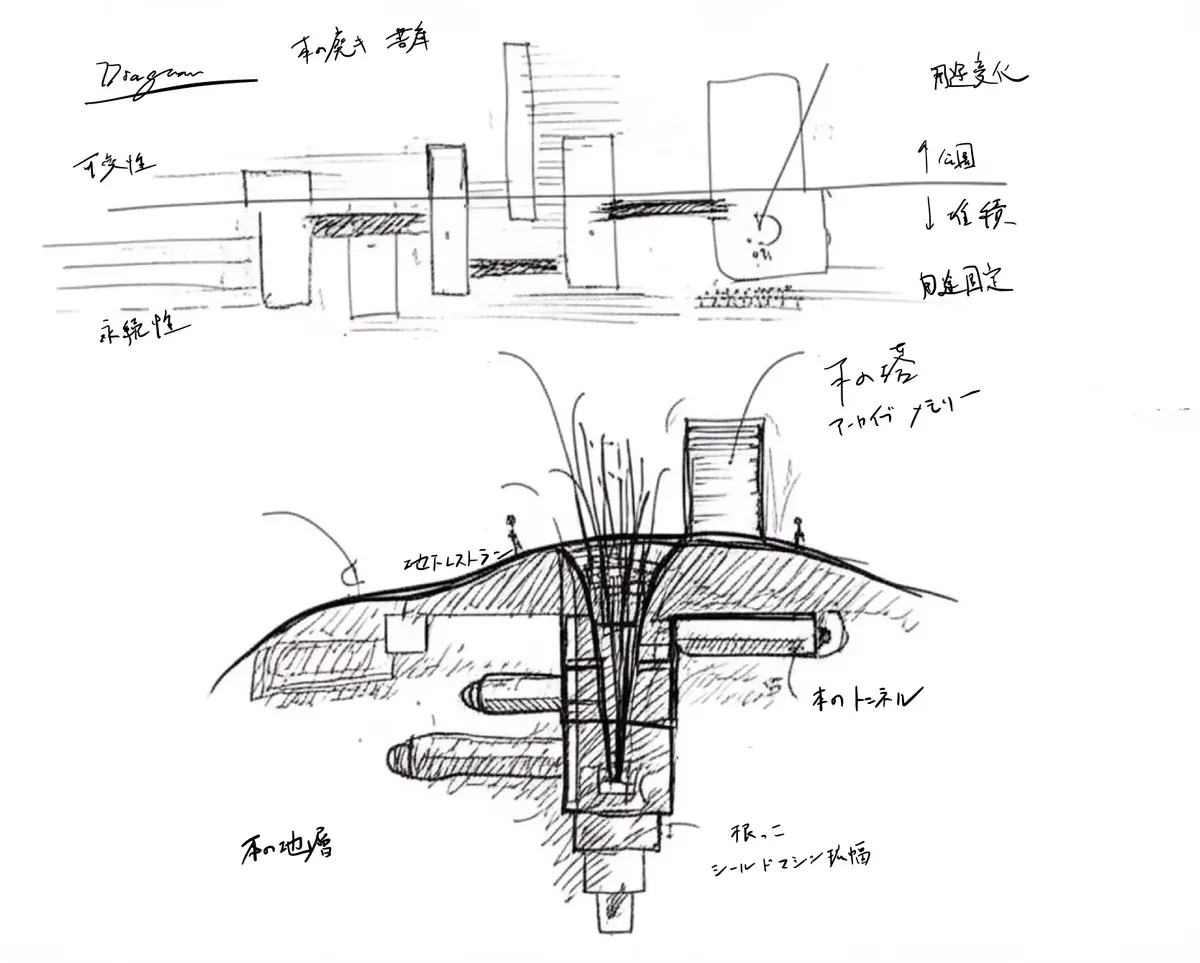 Diagram
本の廃き
可変性
用途変化
↑公園
↓堆積
用途固定
永続性
本の塔
アーカイブ メモリー
地下レストラン
本のトンネル
本の地層
根っこ
シールドマシン拡幅